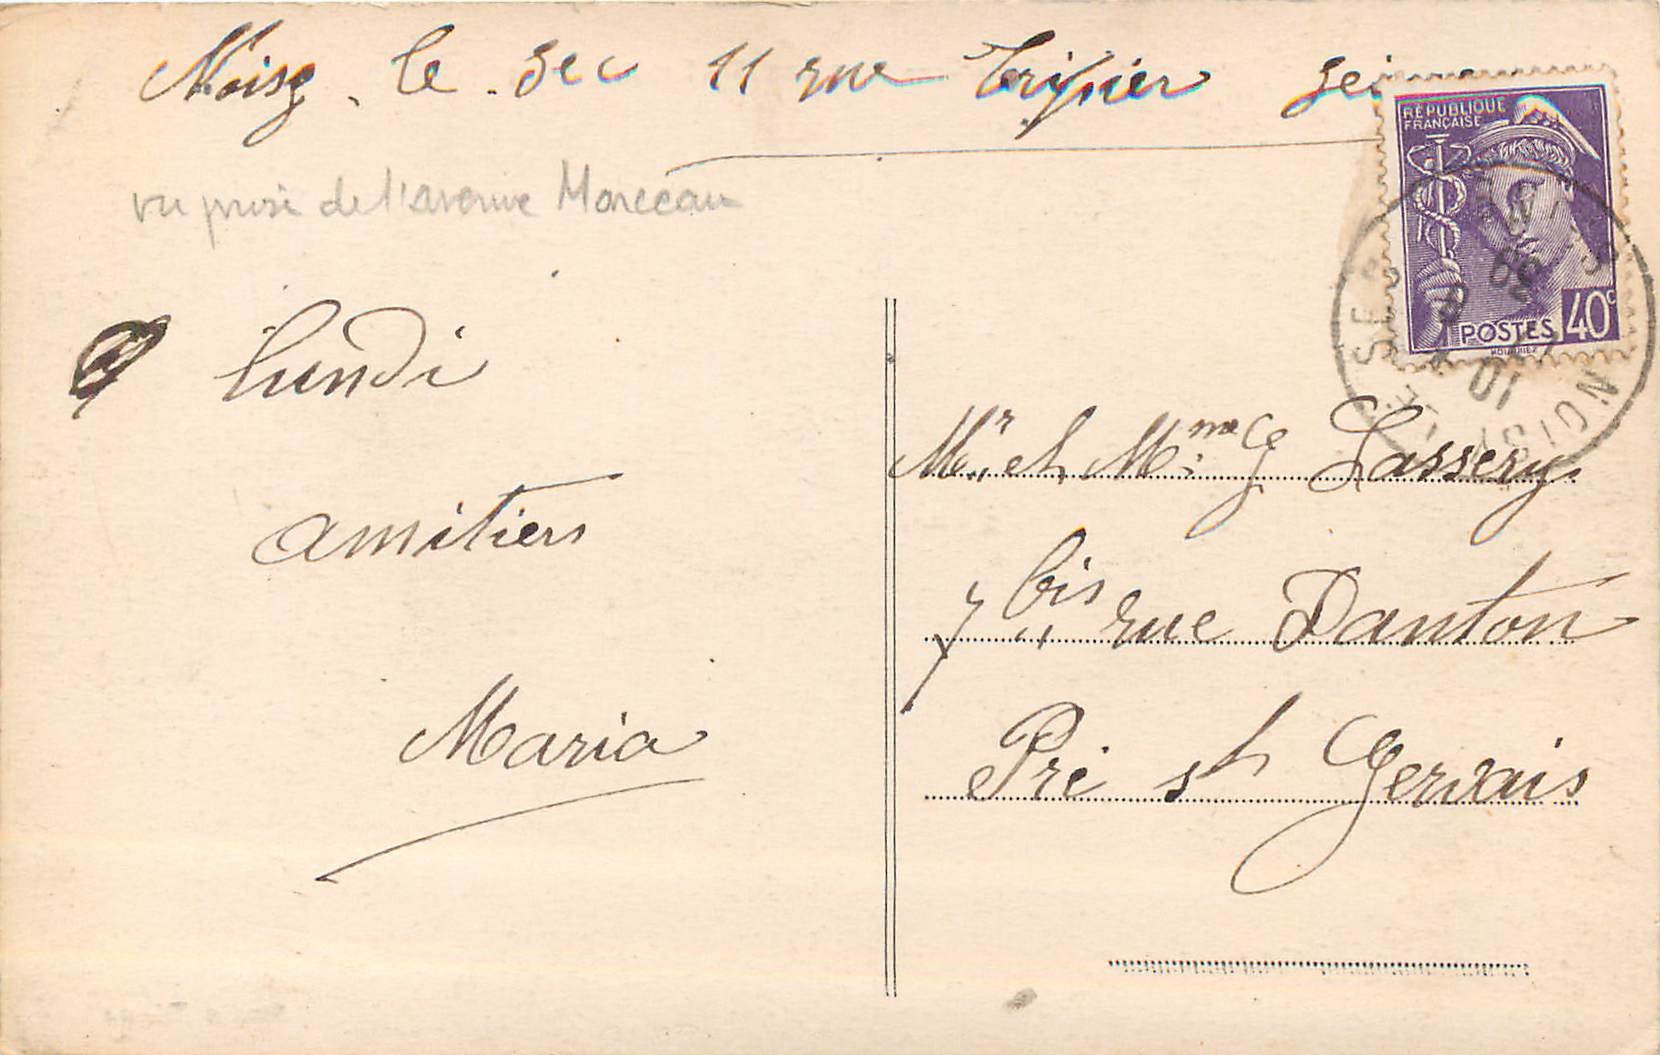 Noisy. le. Sec 11 rue Tripier Seine
vu prise de l'avenue Marceau
lundi
amitiers
Maria
RÉPUBLIQUE
FRANÇAISE
POSTES 40c
NOISY LE SEC
10
39
Mr. et Mme G Lassery.
7 bis rue Danton
Pré st Gervais